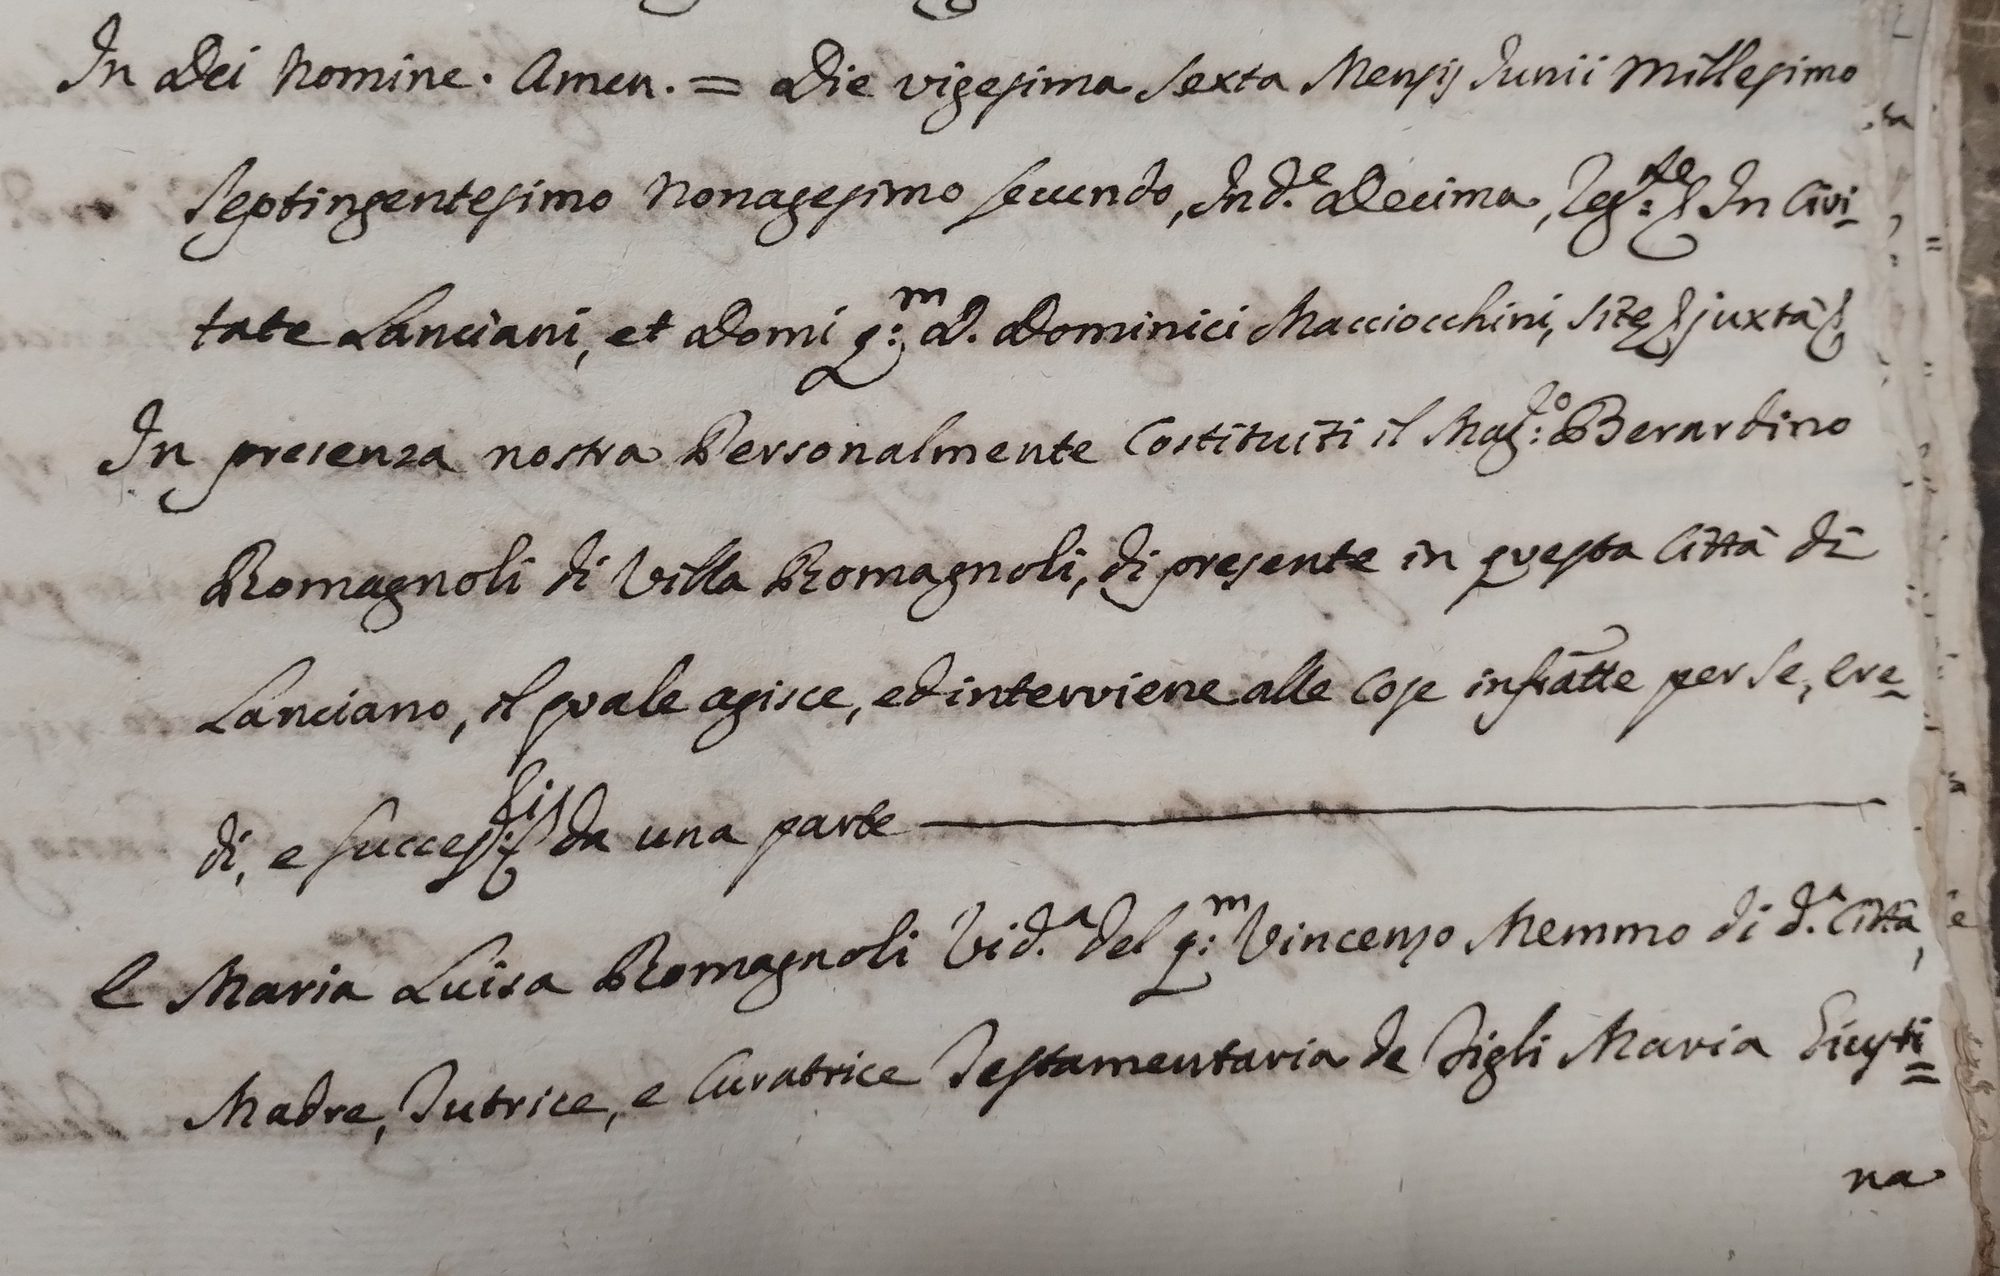 In Dei Nomine. Amen. = Die vigesima sexta Mensis Junii Millesimo
Septingentesimo Nonagesimo secundo, Ind.e Decima, Reg.te In Civi-
tate Lanciani, et Domi q:m D. Dominici Macciocchini, site juxta
In presenza nostra Personalmente Costituiti il Mag:co Berardino
Romagnoli di Villa Romagnoli, di presente in questa Città di
Lanciano, il quale agisce, ed interviene alle cose infratte per se, ere-
di, e success:ri da una parte
E Maria Luisa Romagnoli Vid.a del q:m Vincenzo Memmo di d.a Città,
Madre, Tutrice, e Curatrice Testamentaria de Figli Maria Giusti=
na